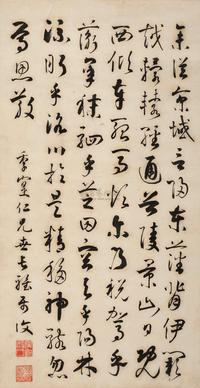 余從京域言歸東藩背伊闕
越轘轅經通谷陵景山日既
西傾車殆馬煩爾乃稅駕乎
蘅皋秣駟乎芝田容與乎陽林
流眄乎洛川於是精移神駭忽
焉思散
仁兄世長